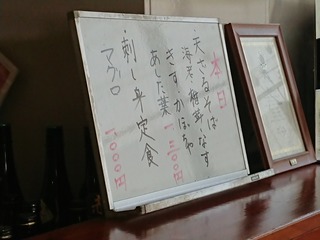 本日
・天ざるそば
海老、椎茸、なす
きす、かぼちゃ
あした葉 一三〇〇円
・刺し身定食
マグロ 一〇〇〇円